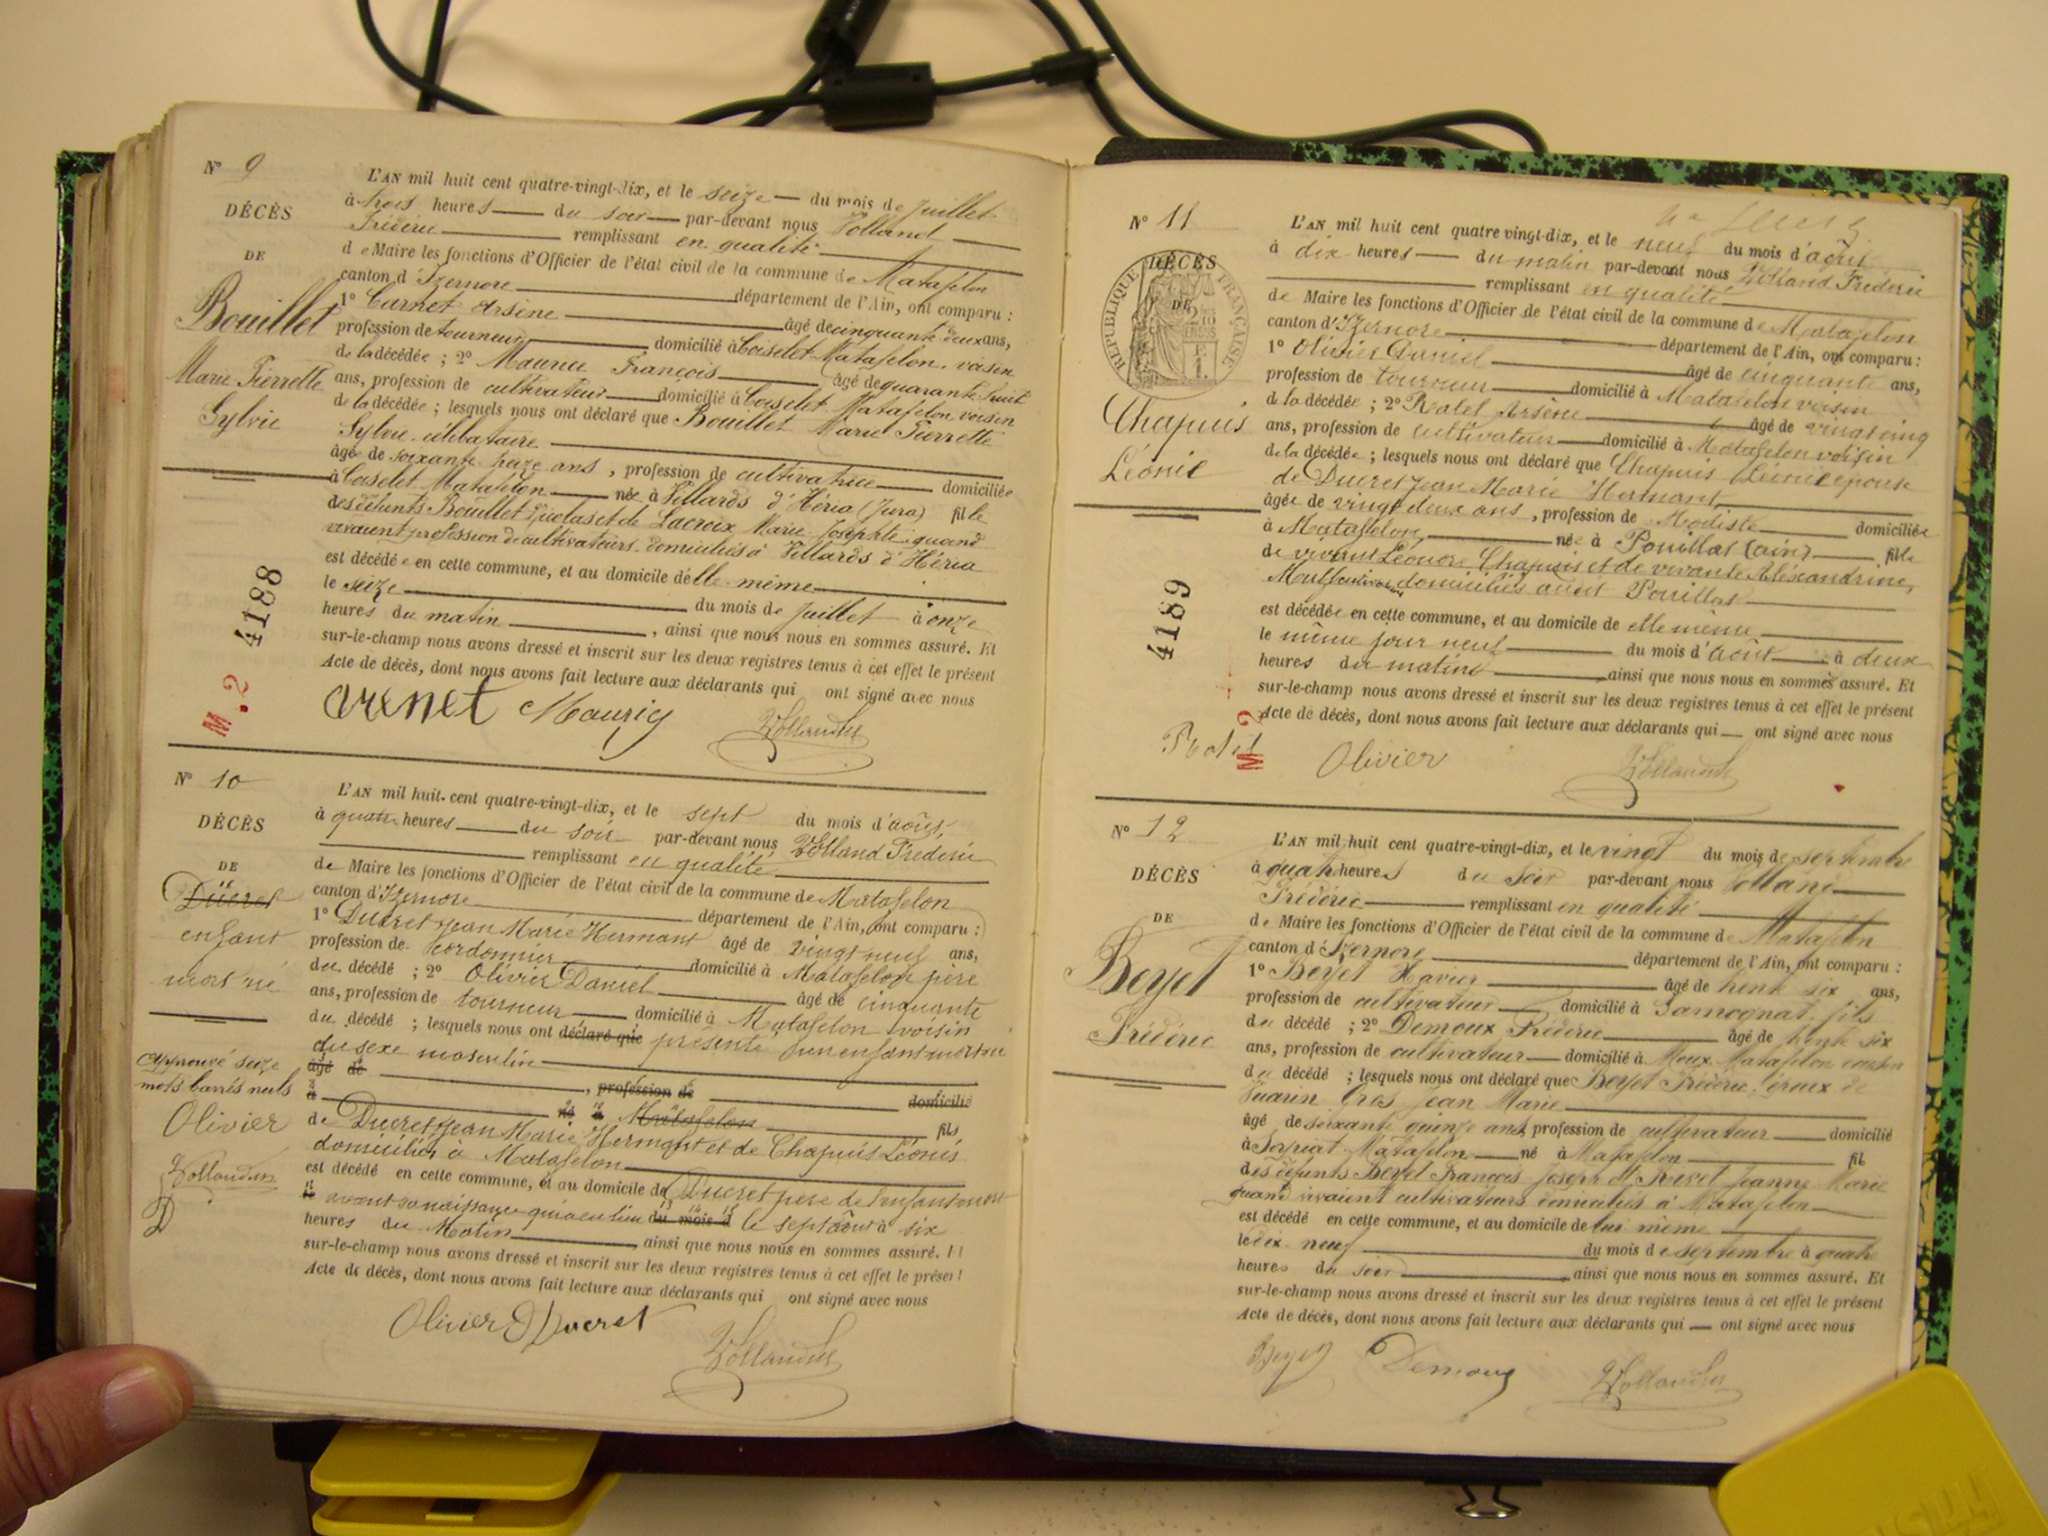 N° 9
DÉCÈS
DE
Bouillet
Marie Pierrette
Sylvie
4188
M. 2
L'AN mil huit cent quatre-vingt-dix, et le seize du mois de juillet
à trois heures du soir par-devant nous Volland
Frédéric remplissant en qualité
de Maire les fonctions d'Officier de l'état civil de la commune de Matafelon
canton d'Izernore département de l'Ain, ont comparu :
1° Carnet Arsène âgé de cinquante deux ans,
profession de tourneur domicilié à Coiselet Matafelon, voisin
de la décédée ; 2° Maurice François âgé de quarante huit
ans, profession de cultivateur domicilié à Coiselet Matafelon voisin
de la décédée ; lesquels nous ont déclaré que Bouillet Marie Pierrette
Sylvie célibataire
âgée de soixante treize ans, profession de cultivatrice domiciliée
à Coiselet Matafelon née à Villards d'Héria (Jura) fille
des défunts Bouillet et de Lacroix Marie Josephte quand
vivaient profession de cultivateurs domiciliés à Villards d'Héria
est décédée en cette commune, et au domicile d'elle-même
le seize du mois de juillet à onze
heures du matin, ainsi que nous nous en sommes assuré. Et
sur-le-champ nous avons dressé et inscrit sur les deux registres tenus à cet effet le présent
Acte de décès, dont nous avons fait lecture aux déclarants qui ont signé avec nous
N° 10
DÉCÈS
DE
Ducret
enfant
mort né
Approuvé seize
mots barrés nuls
Olivier
L'AN mil huit cent quatre-vingt-dix, et le sept du mois d'août
à quatre heures du soir par-devant nous Volland Frédéric
remplissant en qualité
de Maire les fonctions d'Officier de l'état civil de la commune de Matafelon
canton d'Izernore département de l'Ain, ont comparu :
1° Ducret Jean Marie Hermant âgé de vingt neuf ans,
profession de cordonnier domicilié à Matafelon père
du décédé ; 2° Olivier Daniel âgé de cinquante
ans, profession de tourneur domicilié à Matafelon voisin
du décédé ; lesquels nous ont déclaré que présenté un enfant mort né
du sexe masculin
âgé de, profession de domicilié
à né à Matafelon fils
de Ducret Jean Marie Hermant et de Chapuis Léonie
domiciliés à Matafelon
est décédé en cette commune, et au domicile de Ducret père de l'enfant mort
le avant sa naissance qui a eu lieu du mois d le sept août à six
heures du Matin, ainsi que nous nous en sommes assuré. Et
sur-le-champ nous avons dressé et inscrit sur les deux registres tenus à cet effet le présent
Acte de décès, dont nous avons fait lecture aux déclarants qui ont signé avec nous
Olivier D Ducret
N° 11
DÉCÈS
DE
RÉPUBLIQUE FRANÇAISE
Chapuis
Léonie
4189
M 2
L'AN mil huit cent quatre-vingt-dix, et le neuf du mois d'août
à dix heures du matin par-devant nous Volland Frédéric
remplissant en qualité
de Maire les fonctions d'Officier de l'état civil de la commune de Matafelon
canton d'Izernore département de l'Ain, ont comparu :
1° Olivier Daniel âgé de cinquante ans,
profession de tourneur domicilié à Matafelon voisin
de la décédée ; 2° Ratel Arsène âgé de vingt cinq
ans, profession de cultivateur domicilié à Matafelon voisin
de la décédée ; lesquels nous ont déclaré que Chapuis Léonie épouse
de Ducret Jean Marie Hermant
âgée de vingt deux ans, profession de Modiste domiciliée
à Matafelon née à Pouillat (ain) fille
de vivant Chapuis et de vivante Alexandrine
domiciliés audit Pouillat
est décédée en cette commune, et au domicile de elle même
le même jour neuf du mois d'août à deux
heures du matin ainsi que nous nous en sommes assuré. Et
sur-le-champ nous avons dressé et inscrit sur les deux registres tenus à cet effet le présent
Acte de décès, dont nous avons fait lecture aux déclarants qui ont signé avec nous
Olivier
N° 12
DÉCÈS
DE
Beyet
Frédéric
L'AN mil huit cent quatre-vingt-dix, et le vingt du mois de septembre
à quatre heures du soir par-devant nous Volland
Frédéric remplissant en qualité
de Maire les fonctions d'Officier de l'état civil de la commune de Matafelon
canton d'Izernore département de l'Ain, ont comparu :
1° Beyet Xavier âgé de trente six ans,
profession de cultivateur domicilié à Samognat, fils
du décédé ; 2° Demoux Frédéric âgé de trente six
ans, profession de cultivateur domicilié à Matafelon
du décédé ; lesquels nous ont déclaré que Beyet Frédéric, époux de
Gros Jean Marie
âgé de soixante quinze ans profession de cultivateur domicilié
à Matafelon né à Matafelon fil
des défunts Beyet François Joseph et Jeanne Marie
quand vivaient cultivateurs domiciliés à Matafelon
est décédé en cette commune, et au domicile de lui même
le dix neuf du mois de septembre à quatre
heures du soir, ainsi que nous nous en sommes assuré. Et
sur-le-champ nous avons dressé et inscrit sur les deux registres tenus à cet effet le présent
Acte de décès, dont nous avons fait lecture aux déclarants qui ont signé avec nous
Beyet Demoux